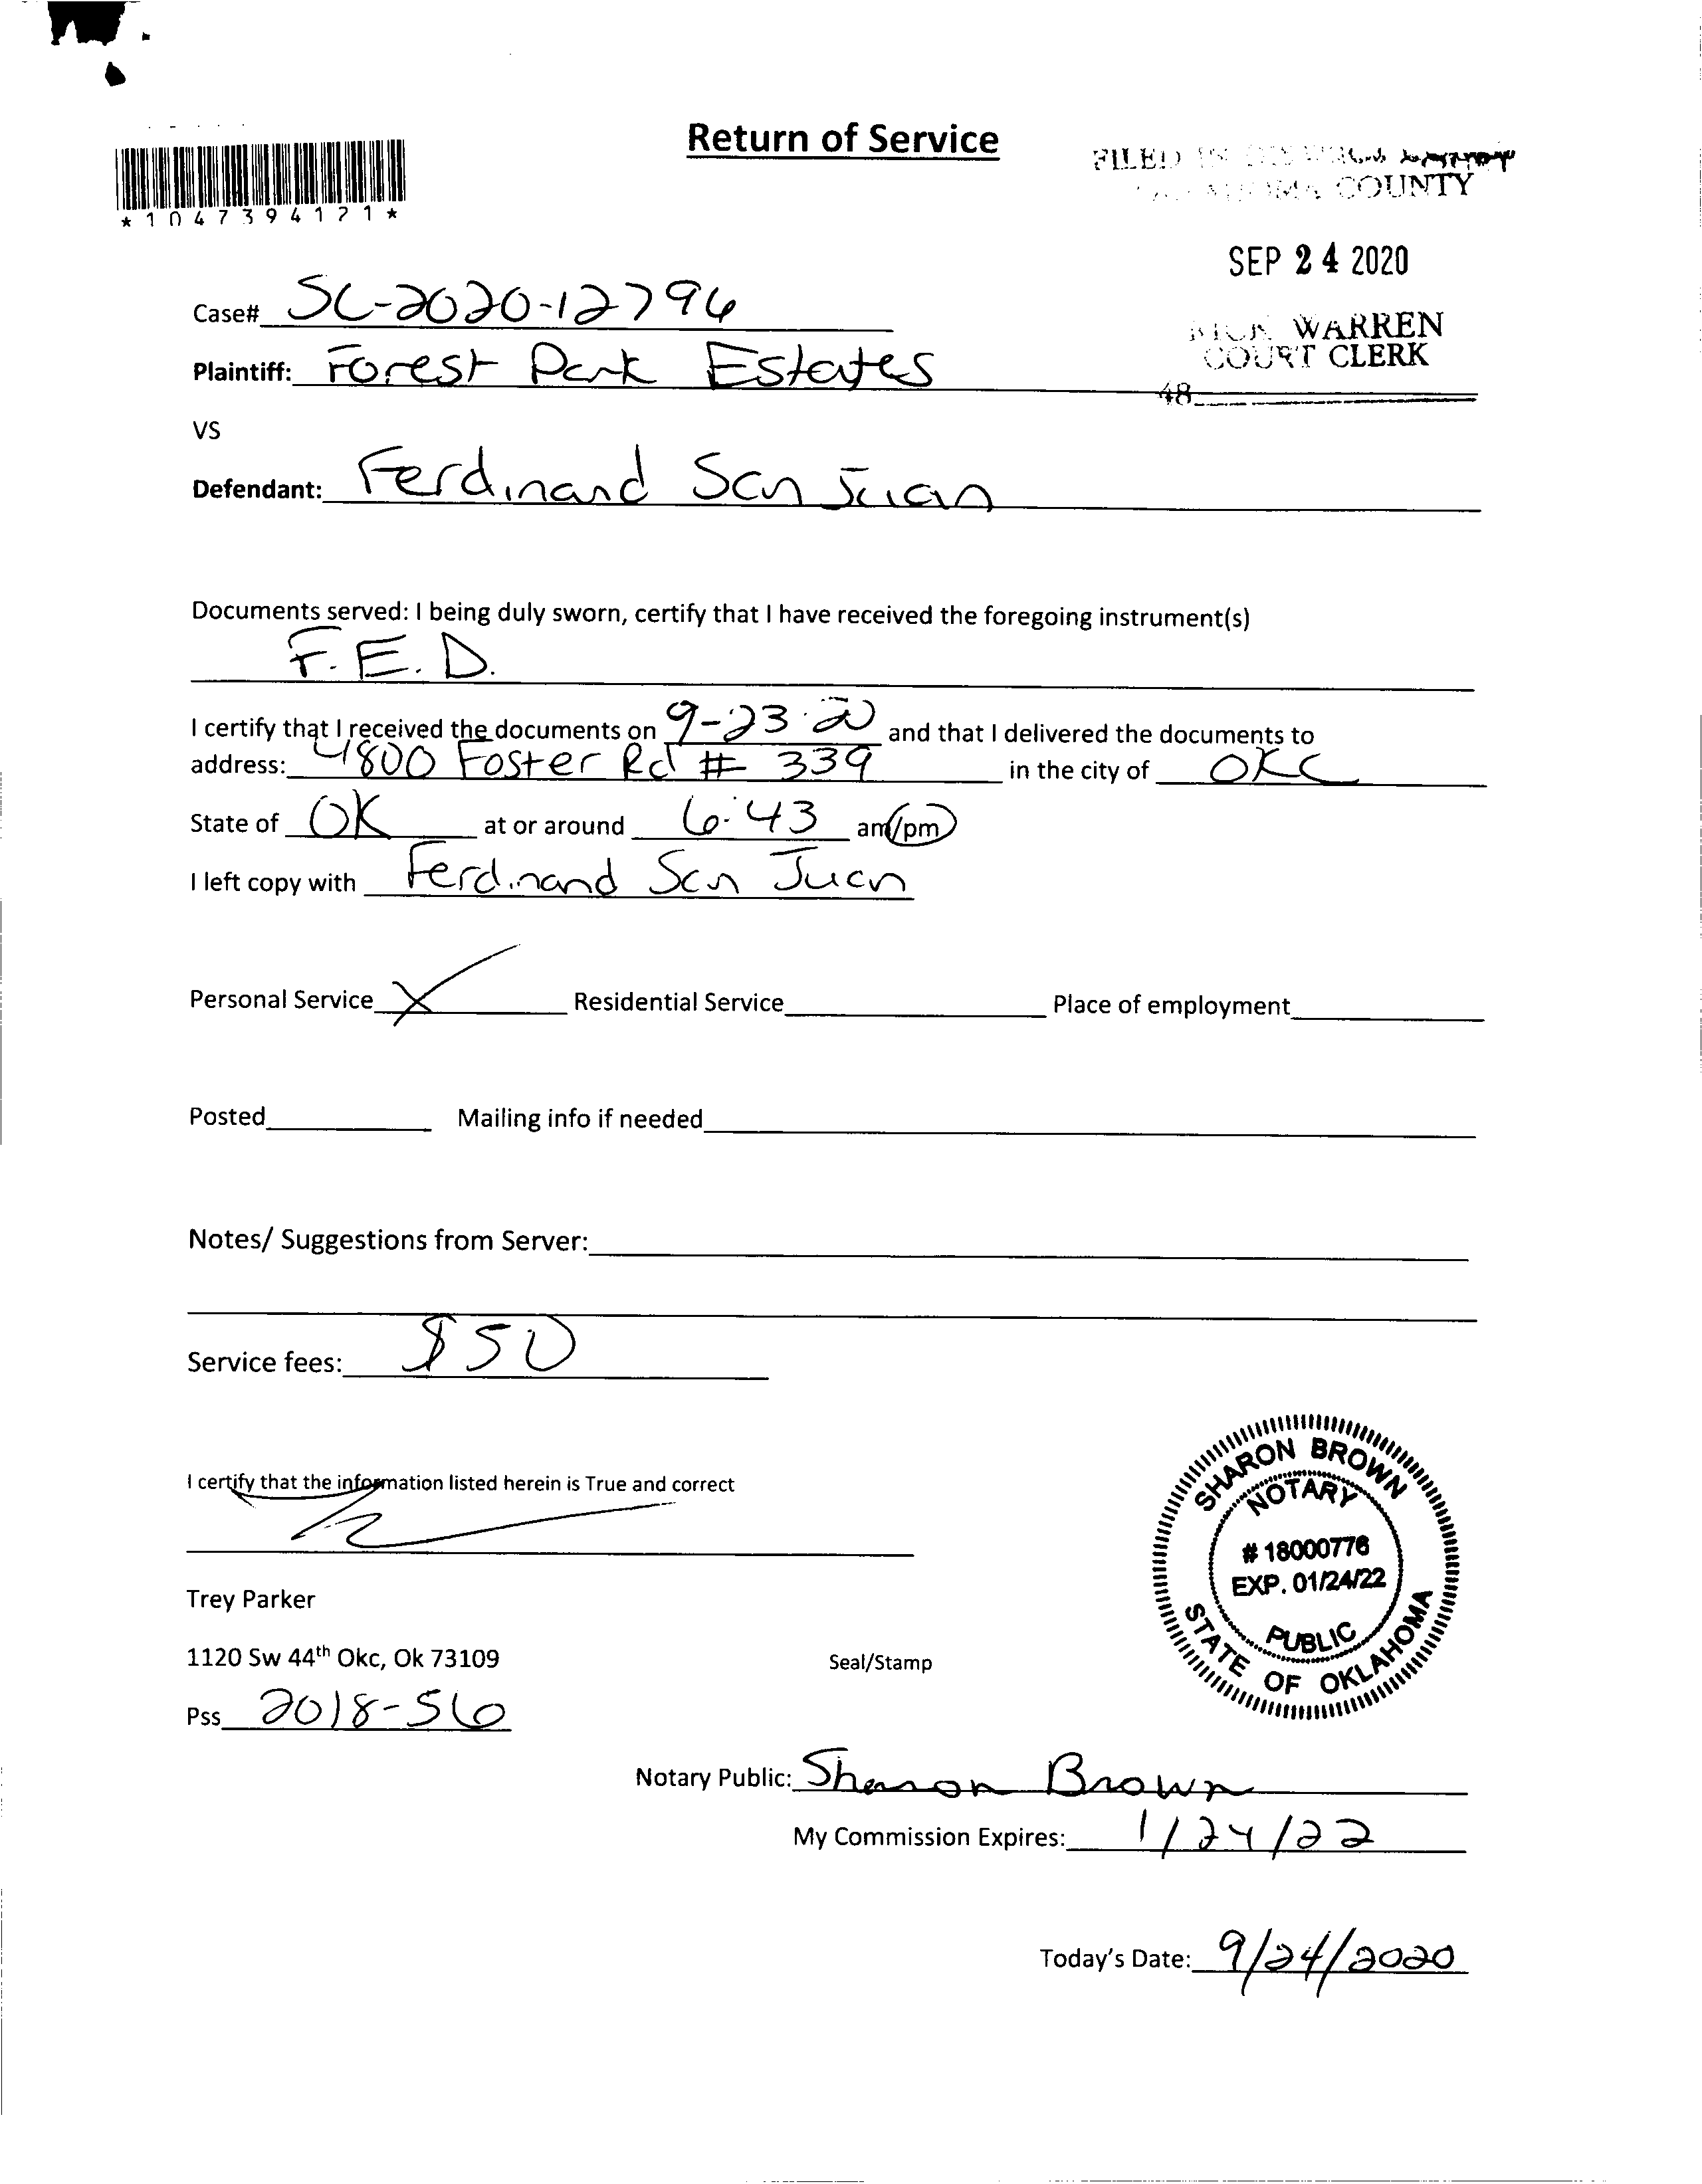 Return of Service
*1047394121*
FILED IN COUNTY
SEP 24 2020
RICK WARREN
COURT CLERK
48
Case# SC-2020-12796
Plaintiff: Forest Park Estates
VS
Defendant: Ferdinand San Juan
Documents served: I being duly sworn, certify that I have received the foregoing instrument(s)
F.E.D.
I certify that I received the documents on 9-23-20 and that I delivered the documents to
address: 4800 Foster Rd # 339 in the city of OKC
State of OK at or around 6:43 am/pm
I left copy with Ferdinand San Juan
Personal Service X Residential Service Place of employment
Posted Mailing info if needed
Notes/ Suggestions from Server:
Service fees: $50
I certify that the information listed herein is True and correct
Trey Parker
1120 Sw 44th Okc, Ok 73109
Seal/Stamp
Pss 2018-56
SHARON BROWN
NOTARY
# 18000776
EXP. 01/24/22
PUBLIC
STATE OF OKLAHOMA
Notary Public: Sharon Brown
My Commission Expires: 1/24/22
Today's Date: 9/24/2020